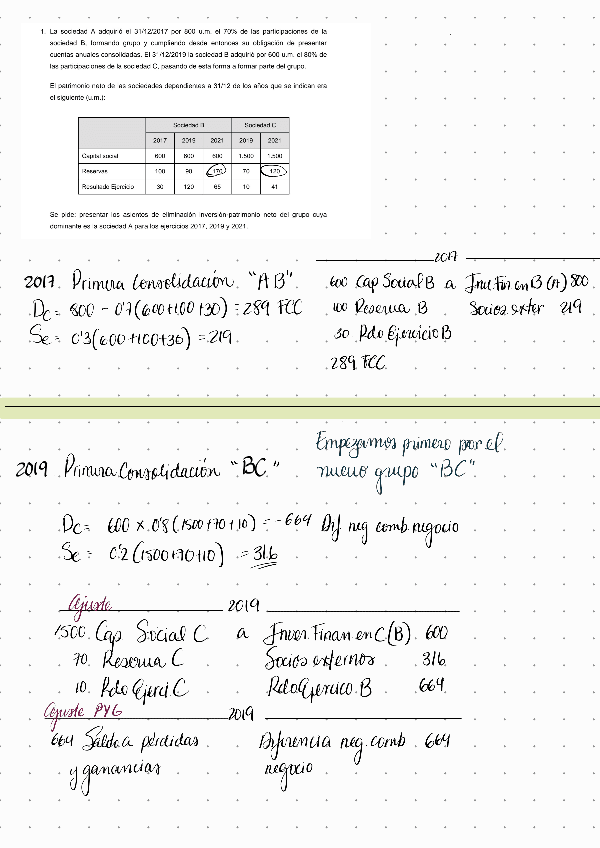 1. La sociedad A adquirió el 31/12/2017 por 800 u.m. el 70% de las participaciones de la
sociedad B, formando grupo y cumpliendo desde entonces su obligación de presentar
cuentas anuales consolidadas. El 31/12/2019 la sociedad B adquirió por 600 u.m. el 80% de
las participaciones de la sociedad C, pasando de esta forma a formar parte del grupo.
El patrimonio neto de las sociedades dependientes a 31/12 de los años que se indican era
el siguiente (u.m.):
Sociedad B Sociedad C
2017 2019 2021 2019 2021
Capital social 600 600 600 1.500 1.500
Reservas 100 90 170 70 120
Resultado Ejercicio 30 120 65 10 41
Se pide: presentar los asientos de eliminación inversión-patrimonio neto del grupo cuya
dominante es la sociedad A para los ejercicios 2017, 2019 y 2021.
2017
2017 Primera Consolidación "AB"
Dc = 800 - 0'7(600+100+30) = 289 FCC
Se = 0'3(600+100+30) = 219
600 Cap Social B a Inv. Fin en B (A) 800
100 Reserva B Socios exter 219
30 Rdo Ejercicio B
289 FCC
Empezamos primero por el
nuevo grupo "BC"
2019 Primera Consolidación "BC"
Dc = 600 x 0'8(1500+70+10) = -664 Dif neg comb. negocio
Se = 0'2(1500+70+10) = 316
Ajuste 2019
1500 Cap Social C a Inver. Finan en C(B) 600
70 Reserva C Socios externos 316
10 Rdo Ejerci. C Rdo Ejercico B 664
Ajuste PYG 2019
664 Saldo a perdidas Diferencia neg. comb 664
y ganancias negocio